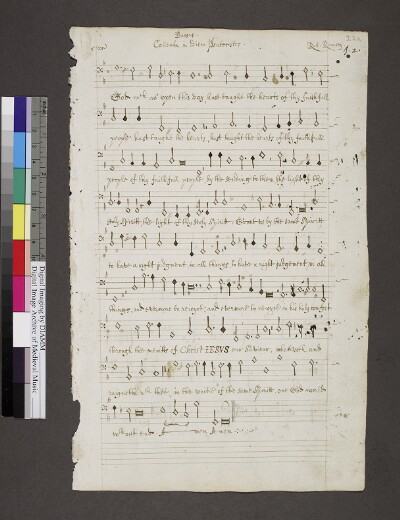 God wch as upon this day hast taught the hearts of thy faithfull
people hast taught the hearts, hast taught the hearts of thy faithfull
people of thy faithfull people by the sending to them the light of thy
Holy Spirit, the light of thy Holy Spirit. Graunt us by the same Spirit
to have a right judgment in all things, to have a right judgement in all
things, and evermore to rejoyce, and evermore to rejoyce in his holy comfort
through the meritts of Christ IESUS our Saviour, who liveth and
raigneth with thee, in the unitie of the same Spirit, one God world
without end. A men A men
Digital Image Archive of Medieval Music
Digital Images by DIAMM